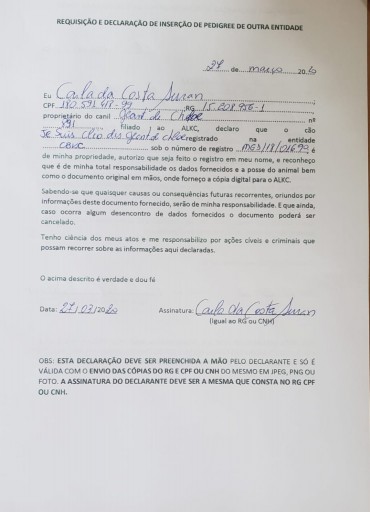 REQUISIÇÃO E DECLARAÇÃO DE INSERÇÃO DE PEDIGREE DE OUTRA ENTIDADE
27 de março 2020
Eu Carla da Costa
CPF RG 15.208.956-1
proprietário do canil Gent de Chloe nº
891 filiado ao ALKC, declaro que o cão
Je Suis Clio dis Gent d Chloe registrado na entidade
CBKC sob o número de registro é
de minha propriedade, autorizo que seja feito o registro em meu nome, e reconheço
que é de minha total responsabilidade os dados fornecidos e a posse do animal bem
como o documento original em mãos, onde forneço a cópia digital para o ALKC.
Sabendo-se que quaisquer causas ou consequências futuras recorrentes, oriundos por
informações deste documento fornecido, serão de minha responsabilidade. E que ainda,
caso ocorra algum desencontro de dados fornecidos o documento poderá ser
cancelado.
Tenho ciência dos meus atos e me responsabilizo por ações cíveis e criminais que
possam recorrer sobre as informações aqui declaradas.
O acima descrito é verdade e dou fé
Data: 27/03/2020 Assinatura: Carla da Costa
(Igual ao RG ou CNH)
OBS: ESTA DECLARAÇÃO DEVE SER PREENCHIDA A MÃO PELO DECLARANTE E SÓ É
VÁLIDA COM O ENVIO DAS CÓPIAS DO RG E CPF OU CNH DO MESMO EM JPEG, PNG OU
FOTO. A ASSINATURA DO DECLARANTE DEVE SER A MESMA QUE CONSTA NO RG CPF
OU CNH.